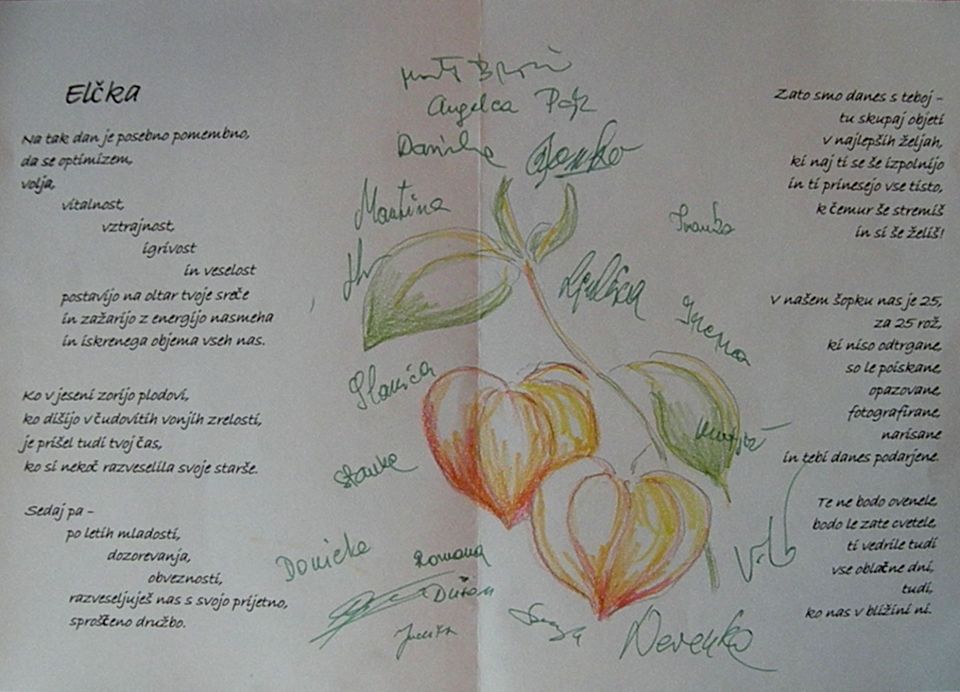 Elčka
Na tak dan je posebno pomembno,
da se optimizem,
volja,
vitalnost,
vztrajnost,
igrivost
in veselost
postavijo na oltar tvoje sreče
in zažarijo z energijo nasmeha
in iskrenega objema vseh nas.
Ko v jeseni zorijo plodovi,
ko dišijo v čudovitih vonjih zrelosti,
je prišel tudi tvoj čas,
ko si nekoč razveselila svoje starše.
Sedaj pa -
po letih mladosti,
dozorevanja,
obveznosti,
razveseljuješ nas s svojo prijetno,
sproščeno družbo.
Angelca
Danilka
Martina
Ivanka
Ljubica
Irena
Slavica
Stanka
Donicka
Romana
Dušan
Nevenka
Zato smo danes s teboj -
tu skupaj objeti
v najlepših željah,
ki naj ti se še izpolnijo
in ti prinesejo vse tisto,
k čemur še stremiš
in si še želiš!
V našem šopku nas je 25,
za 25 rož,
ki niso odtrgane,
so le poiskane,
opazovane,
fotografirane,
narisane
in tebi danes podarjene.
Te ne bodo ovenele,
bodo le zate cvetele,
ti vedrile tudi
vse oblačne dni,
tudi,
ko nas v bližini ni.